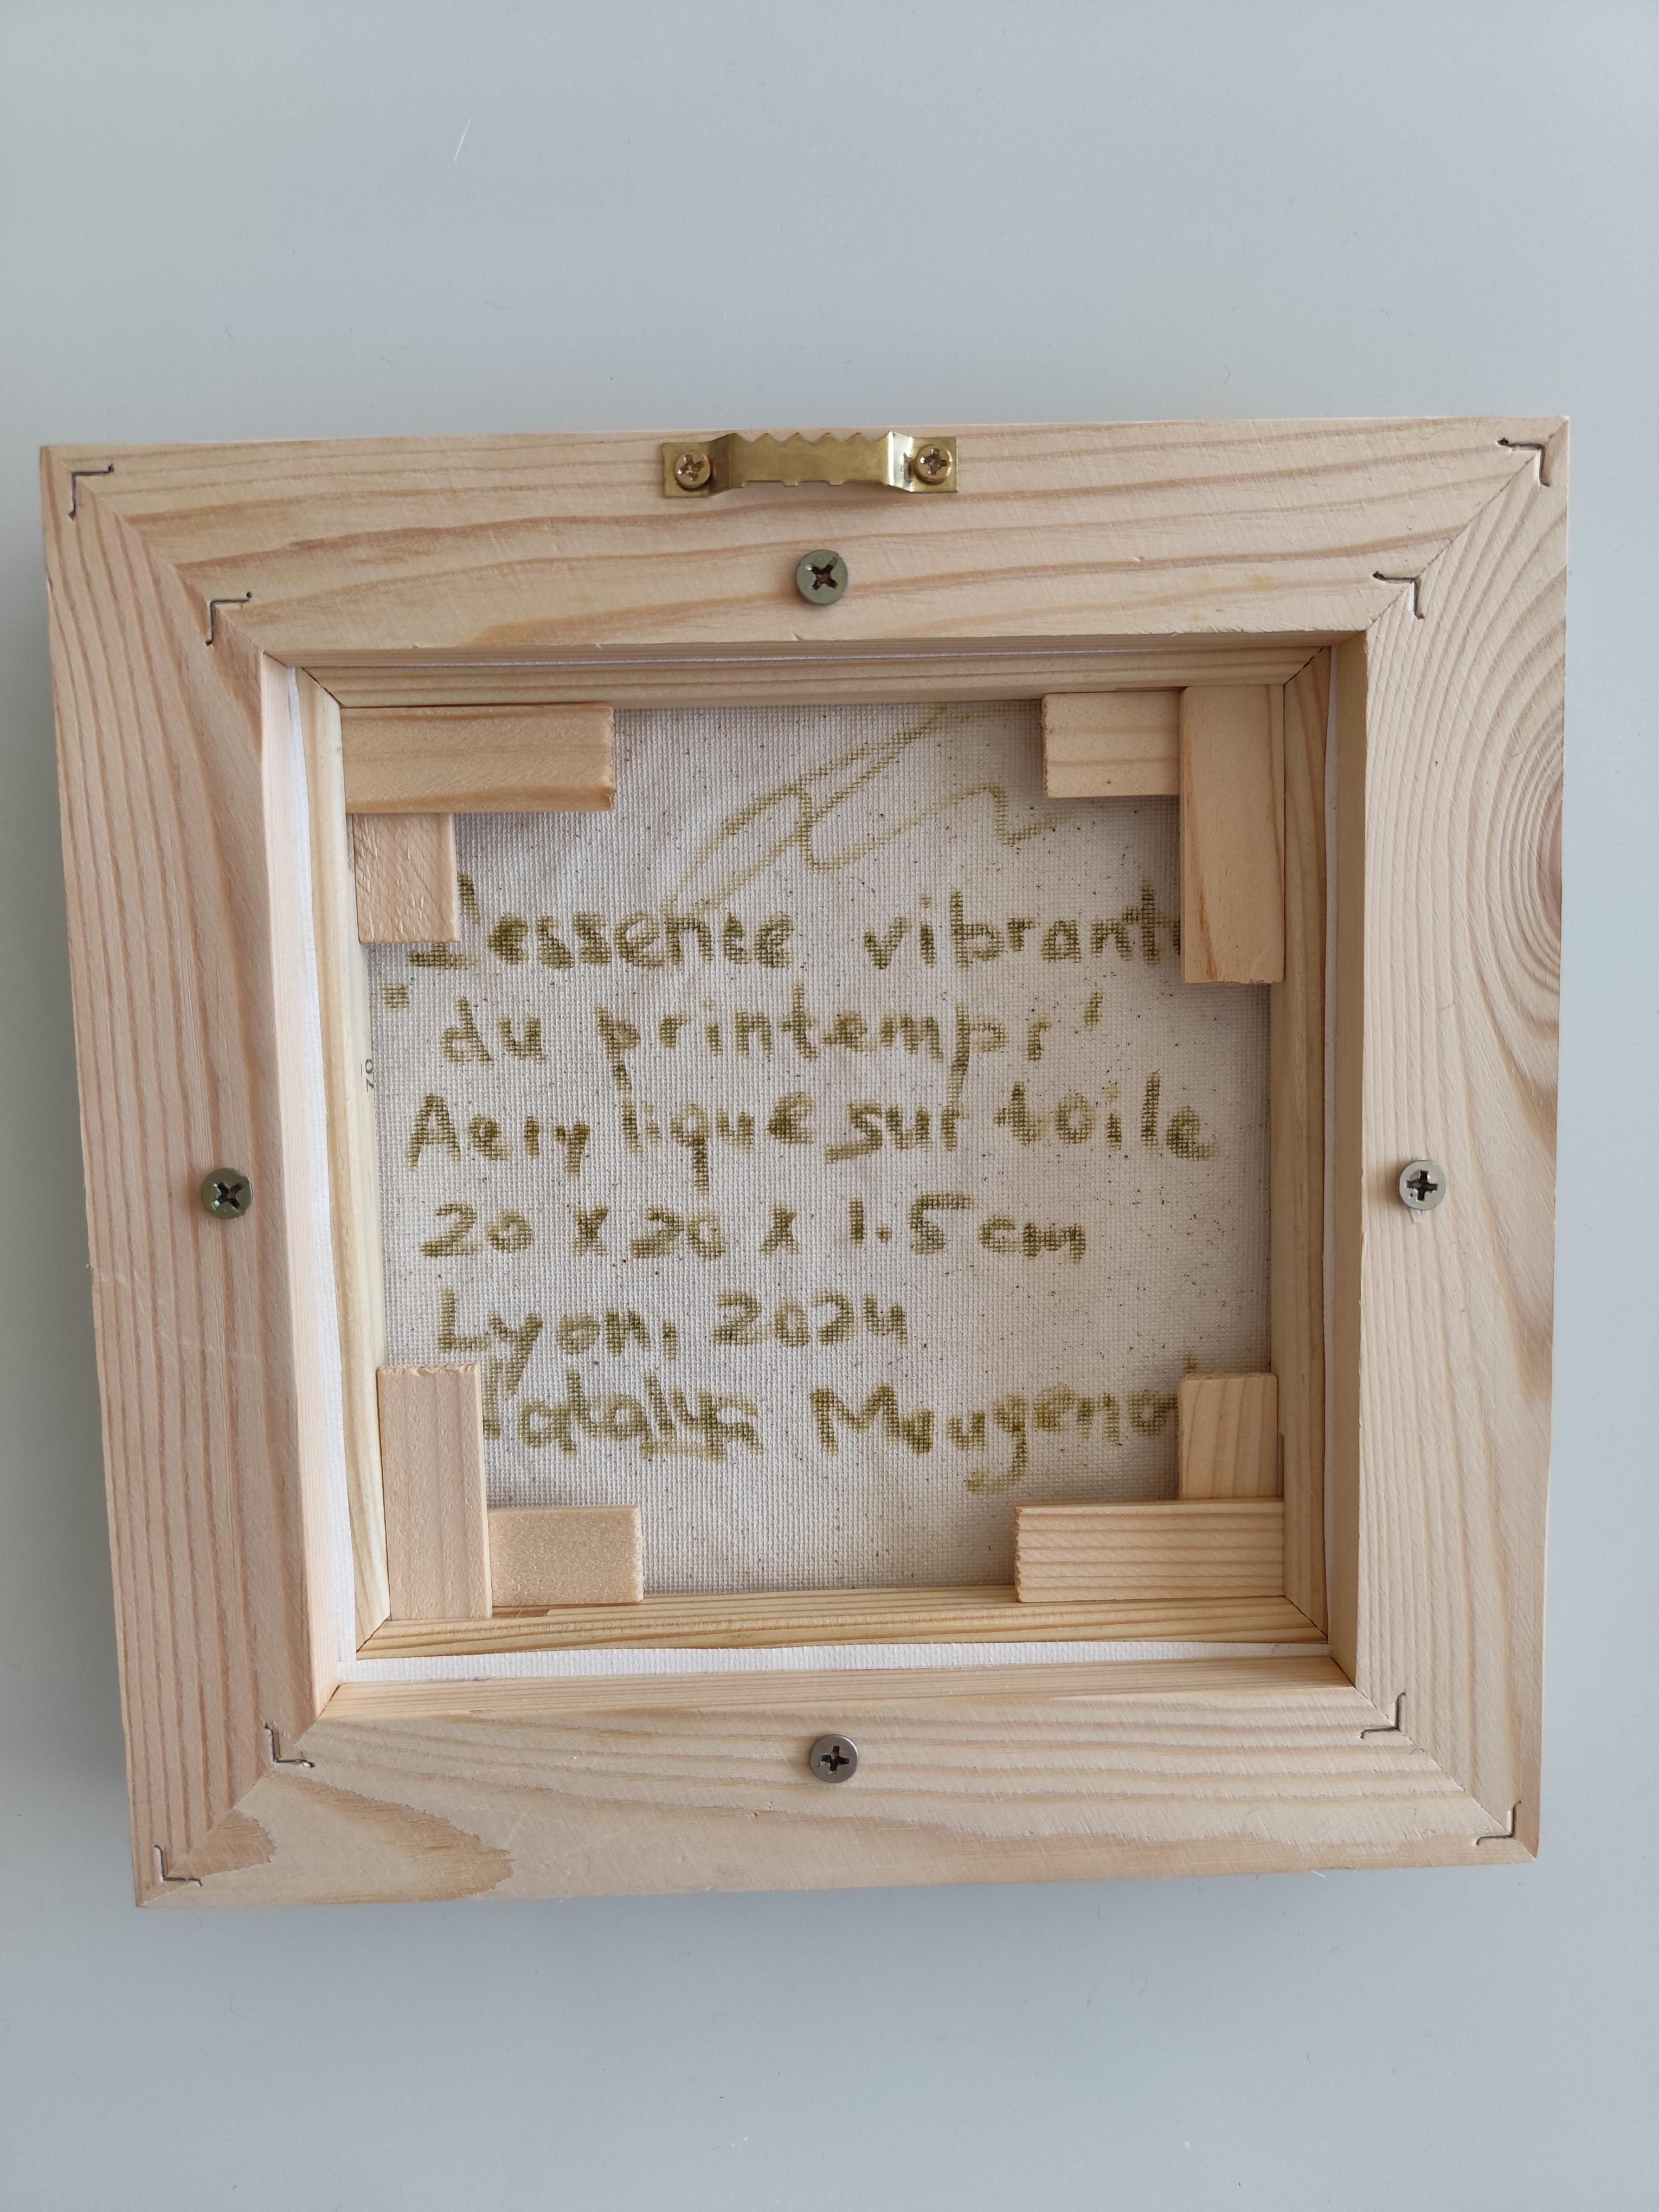 L'essence vibrante
"du printemps"
Acrylique sur toile
20 x 20 x 1.5 cm
Lyon, 2024
Natalya Mougenot